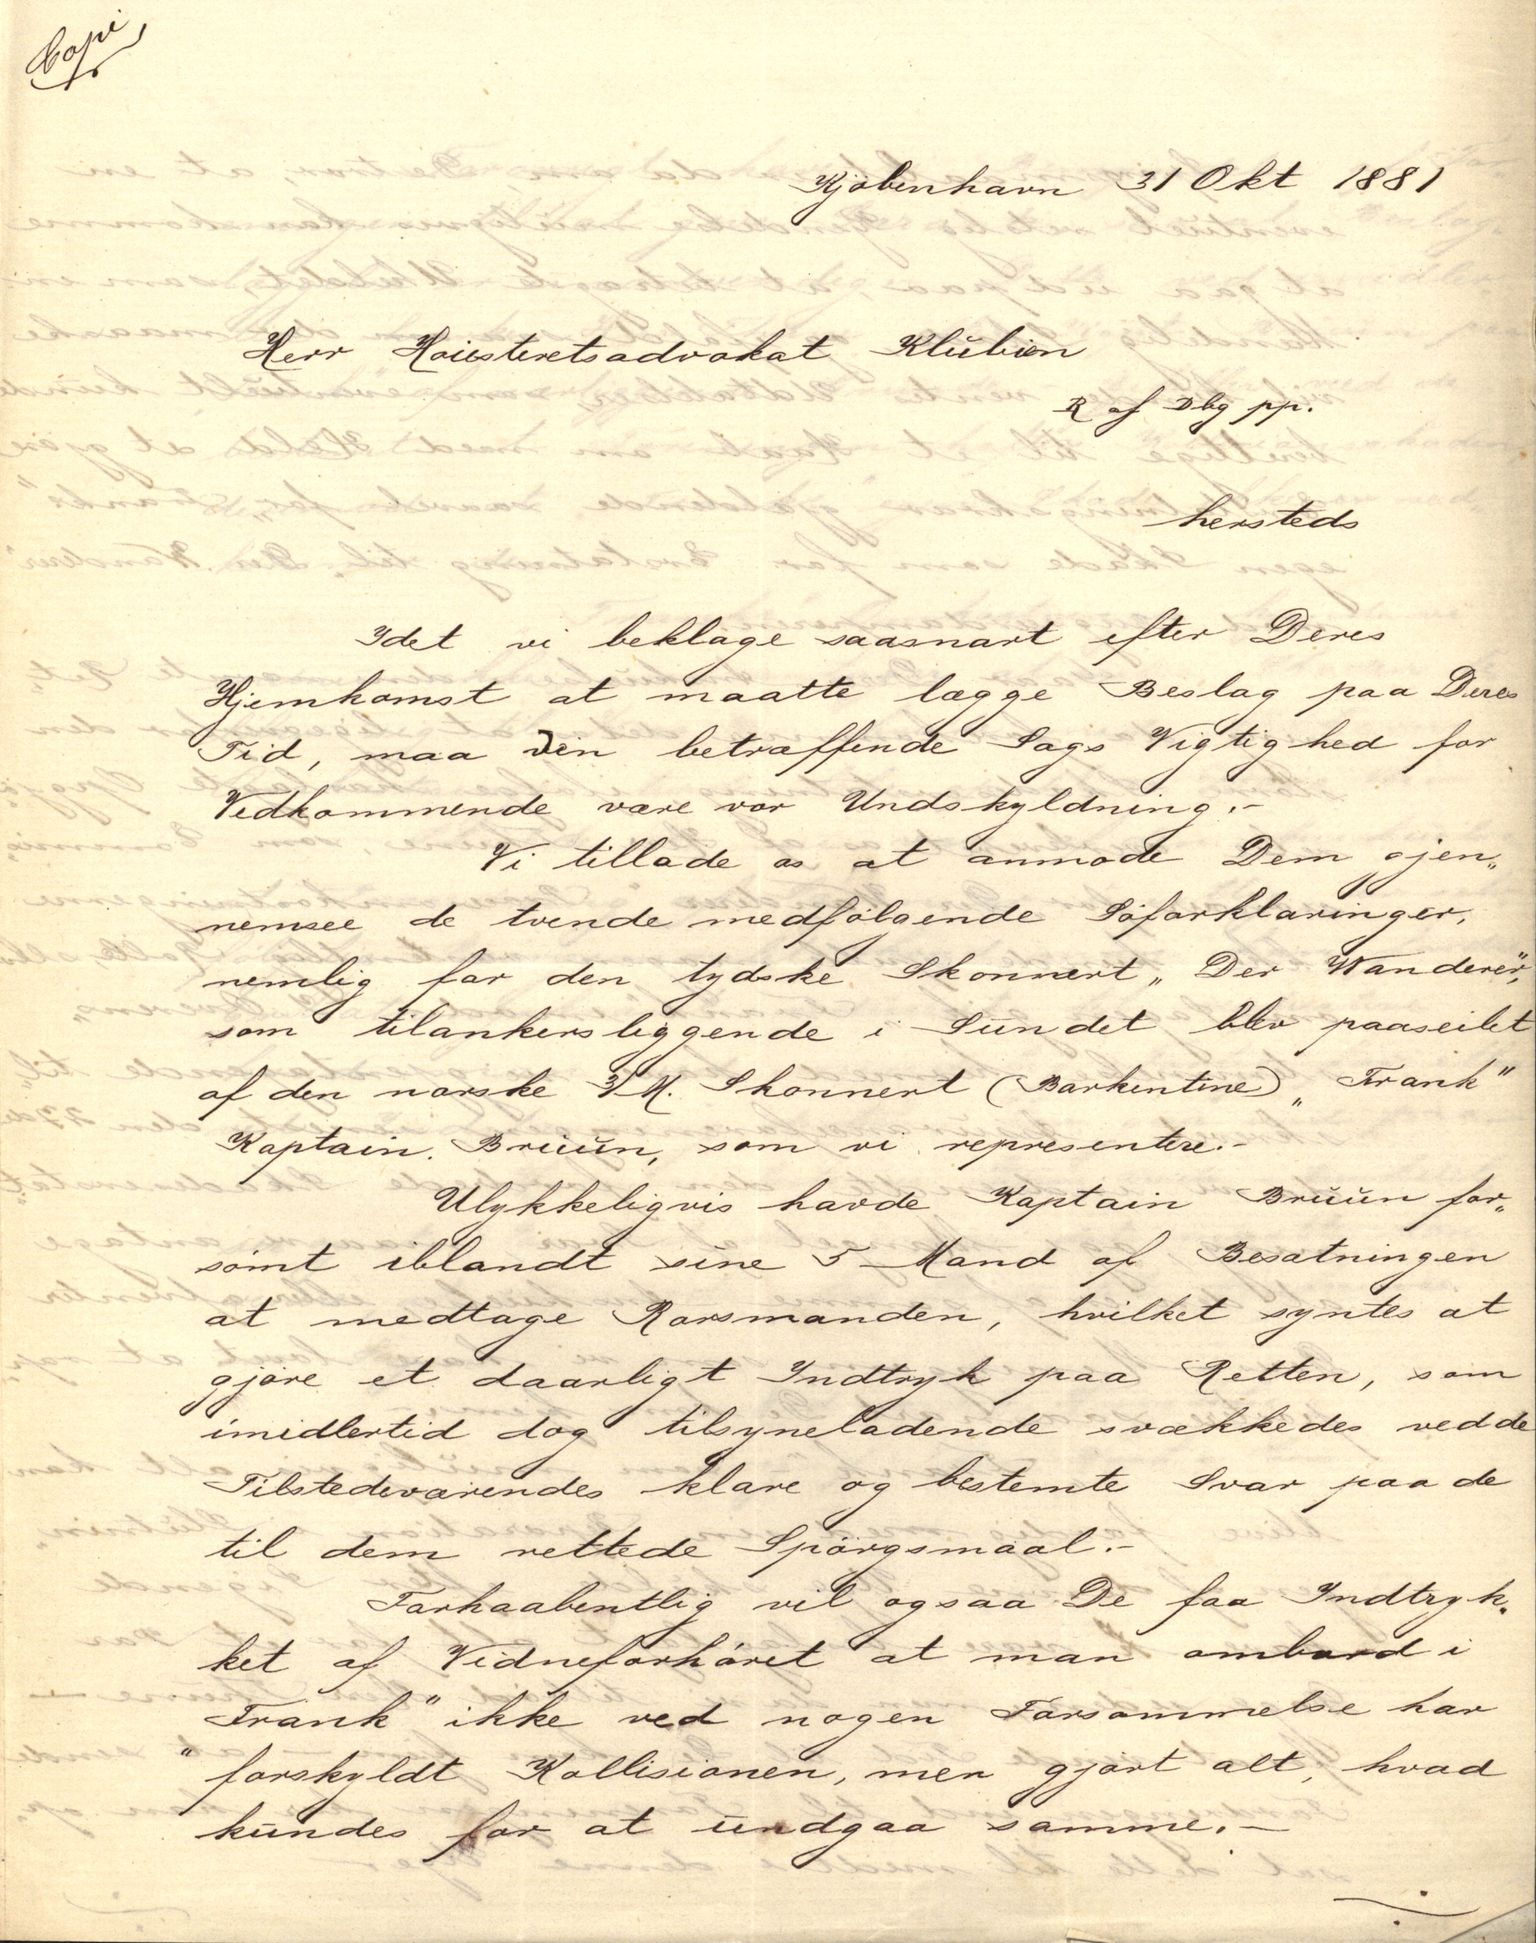 Copi
Kjøbenhavn 31 Okt 1881
Herr Høiesteretsadvokat Klubien
R af Dbg pp.
hersteds
Idet vi beklage saasnart efter Deres
Hjemkomst at maatte lægge Beslag paa Deres
Tid, maa Den betræffende Sags Vigtighed for
Vedkommende være vor Undskyldning.-
Vi tillade os at anmode Dem gjen„
nemsee de tvende medfølgende Søforklaringer,
nemlig for den tydske Skonnert „Der Wanderer",
som tilankersliggende i Sundet blev paaseilet
af den norske 3/M. Skonnert (Barkentine) „Frank"
Kaptain. Bruun, som vi representere.-
Ulykkeligvis havde Kaptain Bruun for„
sømt iblandt sine 5 Mand af Besætningen
at medtage Rorsmanden, hvilket syntes at
gjøre et daarligt Indtryk paa Retten, som
imidlertid dog tilsyneladende svækkedes ved de
Tilstedeværendes klare og bestemte Svar paa de
til dem rettede Spørgsmaal.-
Forhaabentlig vil ogsaa De faa Indtryk„
ket af Vidneforhøret at man ombord i
„Frank" ikke ved nogen Forsømmelse har
forskyldt Kollisionen, men gjort alt, hvad
kundes for at undgaa samme.-